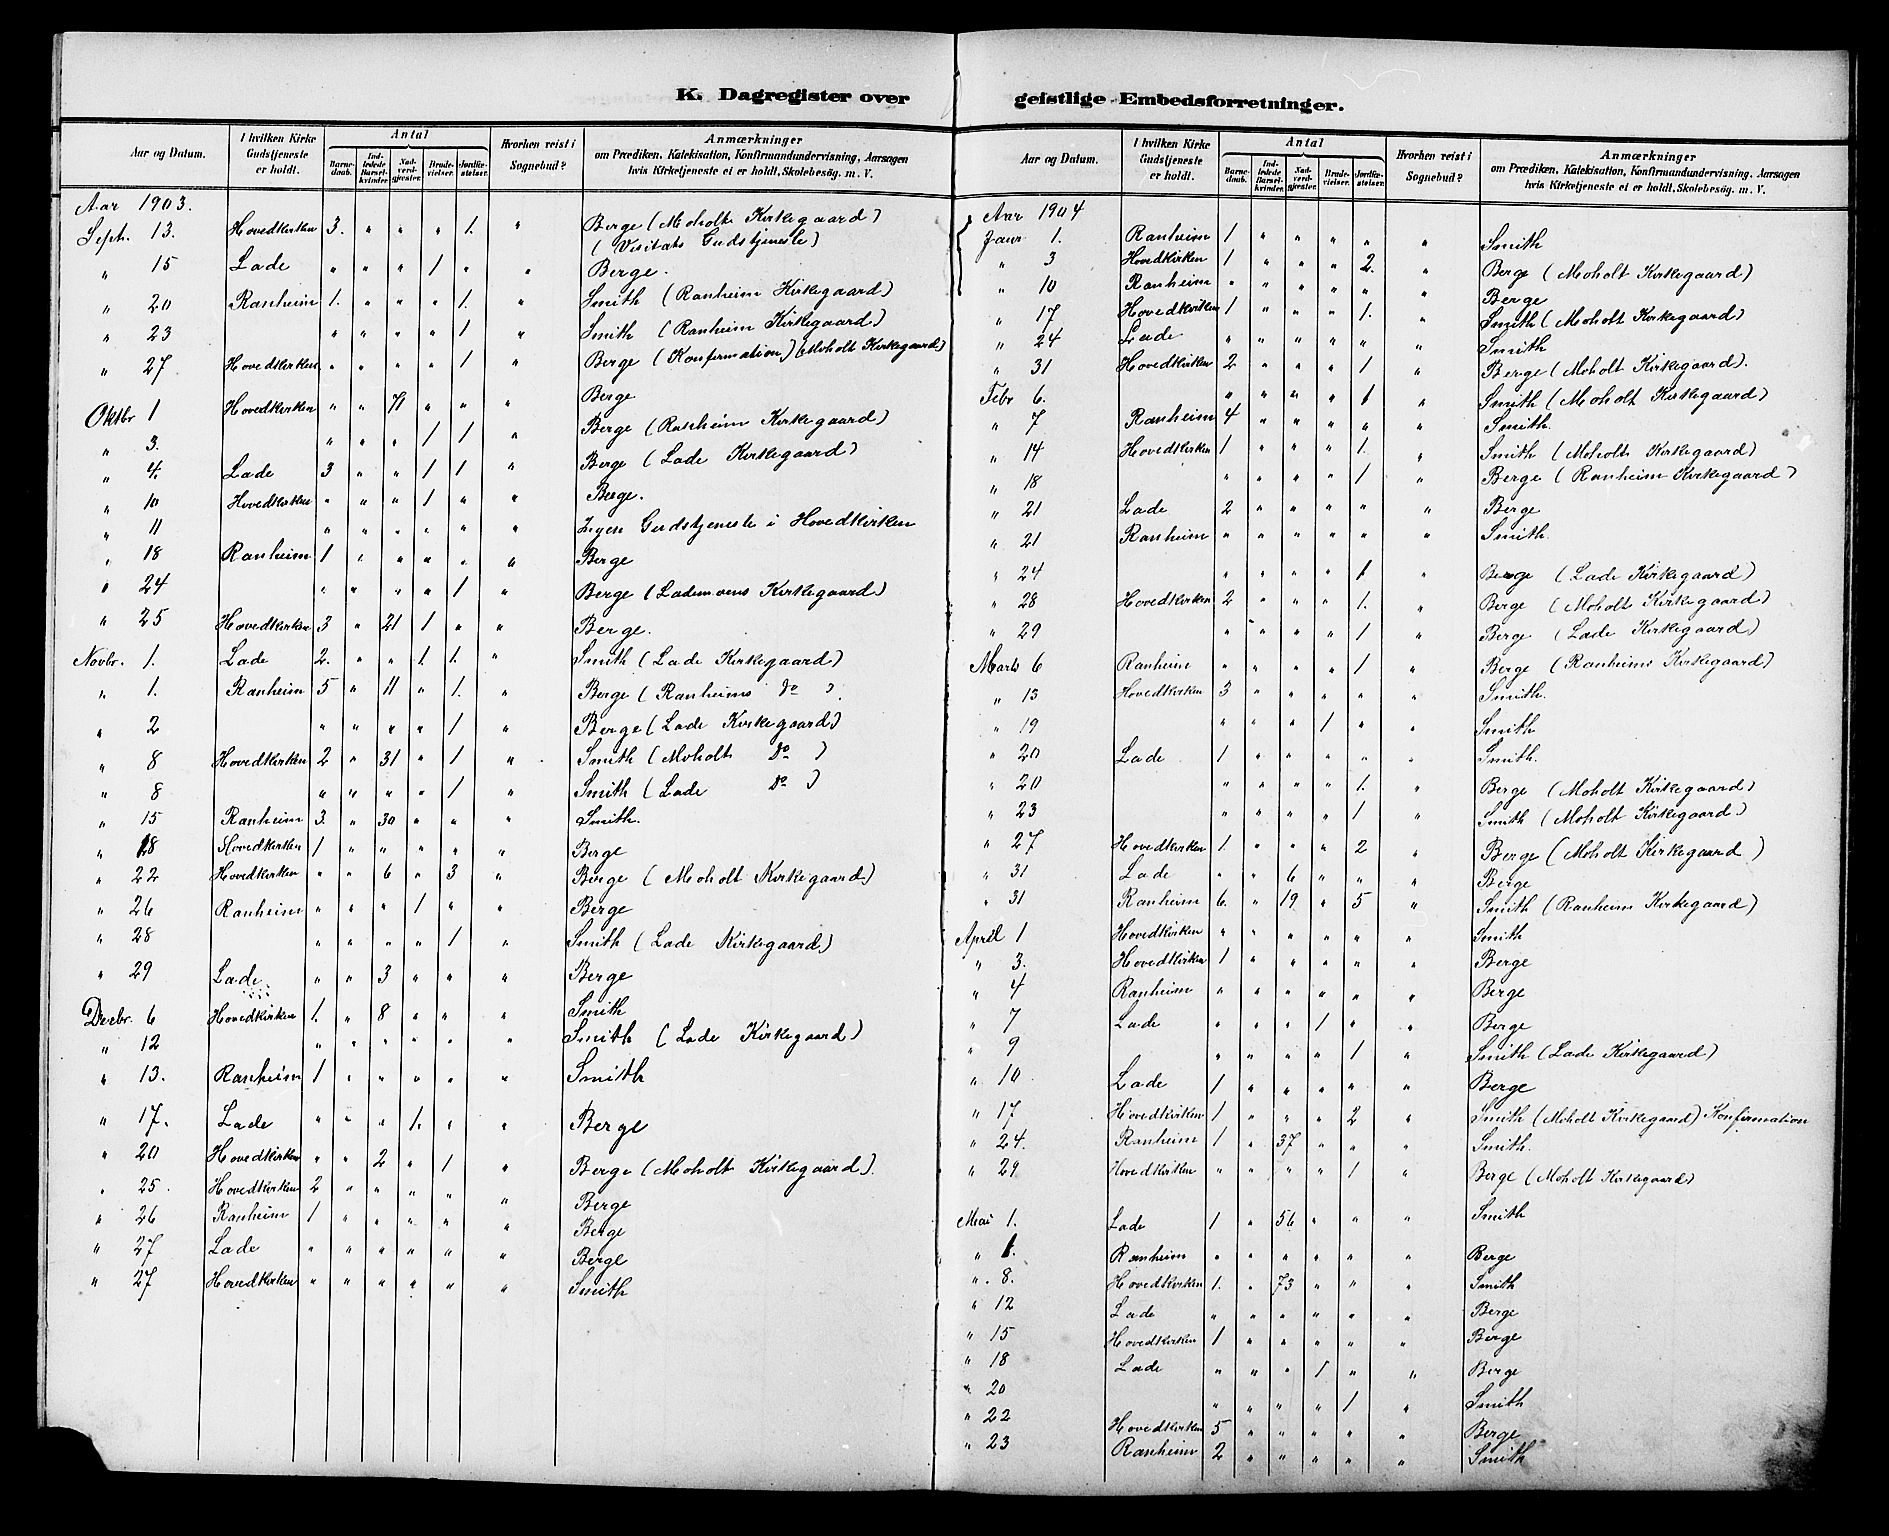 K. Dagregister over geistlige Embedsforretninger.
Aar og Datum. | I hvilken Kirke Gudstjeneste er holdt. | Antal | Barnedaab. | Indledede Barselkvinder. | Nadverdgjester. | Brudevielser. | Jordfæstelser. | Hvorhen reist i Sognebud? | Anmærkninger om Prædiken, Katekisation, Konfirmandundervisning, Aarsagen hvis Kirketjeneste ei er holdt, Skolebesøg. m. V.
Aar 1903.
Septb. 13. Hovedkirken 3. " " " 1. " Berge (Moholt Kirkegaard)
(Visitats Gudstjeneste)
" 15 Lade " " " 1 " " Berge.
" 20 Ranheim 1. " " " 1. " Smith (Ranheim Kirkegaard)
" 23 " " " " 1 " Smith (Ranheim Kirkegaard)
" 27 Hovedkirken " " " " 1 " Berge (Konfirmation) (Moholt Kirkegaard)
Oktbr 1 Hovedkirken " " 71 " " " Berge
" 3. " " " 1 1 " Berge (Ranheim Kirkegaard)
" 4. Lade 3 " " 1 1 " Berge (Lade Kirkegaard)
" 10 Hovedkirken " " " 1 " " Berge.
" 11 " " " " " " Ingen Gudstjeneste i Hovedkirken
" 18 Ranheim 1 " " " " " Berge
" 24 " " " " 1 " Berge (Lademoens Kirkegaard)
" 25 Hovedkirken 3 " 21 1 " " Berge.
Novbr. 1. Lade 2. " " 1. 1. " Smith (Lade Kirkegaard)
" 1. Ranheim 5 " 11 " 1. " Berge (Ranheims Do )
" 2 " " " " 1 " Berge (Lade Kirkegaard)
" 8 Hovedkirken 2 " 31 " 1 " Smith (Moholt Do )
" 8 " " " " 1 " Smith (Lade Do )
" 15 Ranheim 3. " 30 " " " Smith.
" 18 Hovedkirken 1 " " " " " Berge
" 22 Hovedkirken " " 6 " 3 " Berge (Moholt Kirkegaard)
" 26 Ranheim " " " 1 " " Berge
" 28 " " " " 1 " Smith (Lade Kirkegaard)
" 29 Lade " " 3 " " " Berge
Decbr. 6 Hovedkirken 1. " 8 " " " Smith
" 12 " " " " " " Smith (Lade Kirkegaard)
" 13. Ranheim 1 " " " " " Smith
" 17. Lade " " " 1. " " Berge
" 20 Hovedkirken " " 2 " 1 " Berge (Moholt Kirkegaard).
" 25. Hovedkirken 2 " " " " " Berge
" 26 Ranheim 1 " " " " " Berge
" 27 Lade " " " " " " Berge
" 27 Hovedkirken " " " " " " Smith
Aar og Datum. | I hvilken Kirke Gudstjeneste er holdt. | Antal | Barnedaab. | Indledede Barselkvinder. | Nadverdgjester. | Brudevielser. | Jordfæstelser. | Hvorhen reist i Sognebud? | Anmærkninger om Prædiken, Katekisation, Konfirmandundervisning, Aarsagen hvis Kirketjeneste ei er holdt, Skolebesøg. m. V.
Aar 1904
Janr 1. Ranheim 1 " " " " " Smith
" 3 Hovedkirken 1 " " " 2. " Berge (Moholt Kirkegaard)
" 10 Ranheim " " " " " " Berge
" 17 Hovedkirken 1 " " " 1. " Smith (Moholt Kirkegaard)
" 24 Lade " " " " " " Smith
" 31 Hovedkirken 2 " " " 1 " Berge (Moholt Kirkegaard).
Febr 6. " " " " 1 " Smith (Moholt Kirkegaard)
" 7 Ranheim 4 " " " " " Smith.
" 14 Hovedkirken 1 " " " 1. " Smith (Moholt Kirkegaard)
" 18 " " " " 1 " Berge (Ranheim Kirkegaard)
" 21 Lade 2 " " " " " Berge
" 21 Ranheim " " " " " " Smith.
" 24 " " " " 1 " Berge (Lade Kirkegaard)
" 28 Hovedkirken 2 " " " 1. " Berge (Moholt Kirkegaard)
" 29 " " " " 1 " Berge (Lade Kirkegaard)
Marts 6 Ranheim " " " " 1 " Berge (Ranheims Kirkegaard)
" 13 Hovedkirken 3 " " " " " Smith.
" 19 " " " 1 " " Smith
" 20 Lade 1 " " " " " Smith.
" 20 " " " " 1. " Berge (Moholt Kirkegaard)
" 23 " " " " 1 " Smith (Moholt Kirkegaard)
" 27 Hovedkirken 1. " " " 2 " Berge (Moholt Kirkegaard)
" 31 Lade " " 6 " " " Berge
" 31 Ranheim 6. " 19 " 5 " Smith (Ranheim Kirkegaard)
April 1 Hovedkirken " " " " " " Smith
" 3. Hovedkirken 1 " " " " " Berge
" 4 Ranheim " " " " " " Berge
" 7 Lade " " " 1 " " Berge
" 9 " " " " 1 " Smith (Lade Kirkegaard)
" 10 Lade 1 " " " " " Berge
" 17 Hovedkirken 1 " " " 2 " Smith (Moholt Kirkegaard) Konfirmation
" 24. Ranheim 1 " 37 " " " Smith.
" 29 Hovedkirken " " " " 1 " Berge (Moholt Kirkegaard)
Mai 1. Lade 1 " 56 " " " Smith
" 1. Ranheim " " " " " " Berge
" 8. Hovedkirken 1. " 73 " " " Smith
" 12 Lade " " " " " " Berge
" 15 Hovedkirken 1 " " " " " Berge
" 18 Lade " " " 1 " " Berge
" 20 " " " " 1 " Smith
" 22 Hovedkirken 5 " " " " " Berge
" 23 Ranheim 2 " " " " " Smith